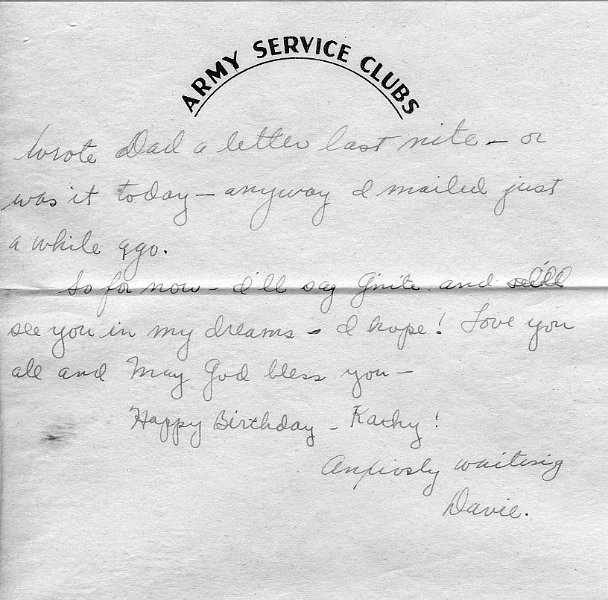 ARMY SERVICE CLUBS
Wrote Dad a letter last nite – or
was it today – anyway I mailed just
a while ago.
So for now – I'll say G'nite and
see you in my dreams – I hope! Love you
all and May God bless you –
Happy Birthday – Kathy!
Anxiously waiting
Davie.